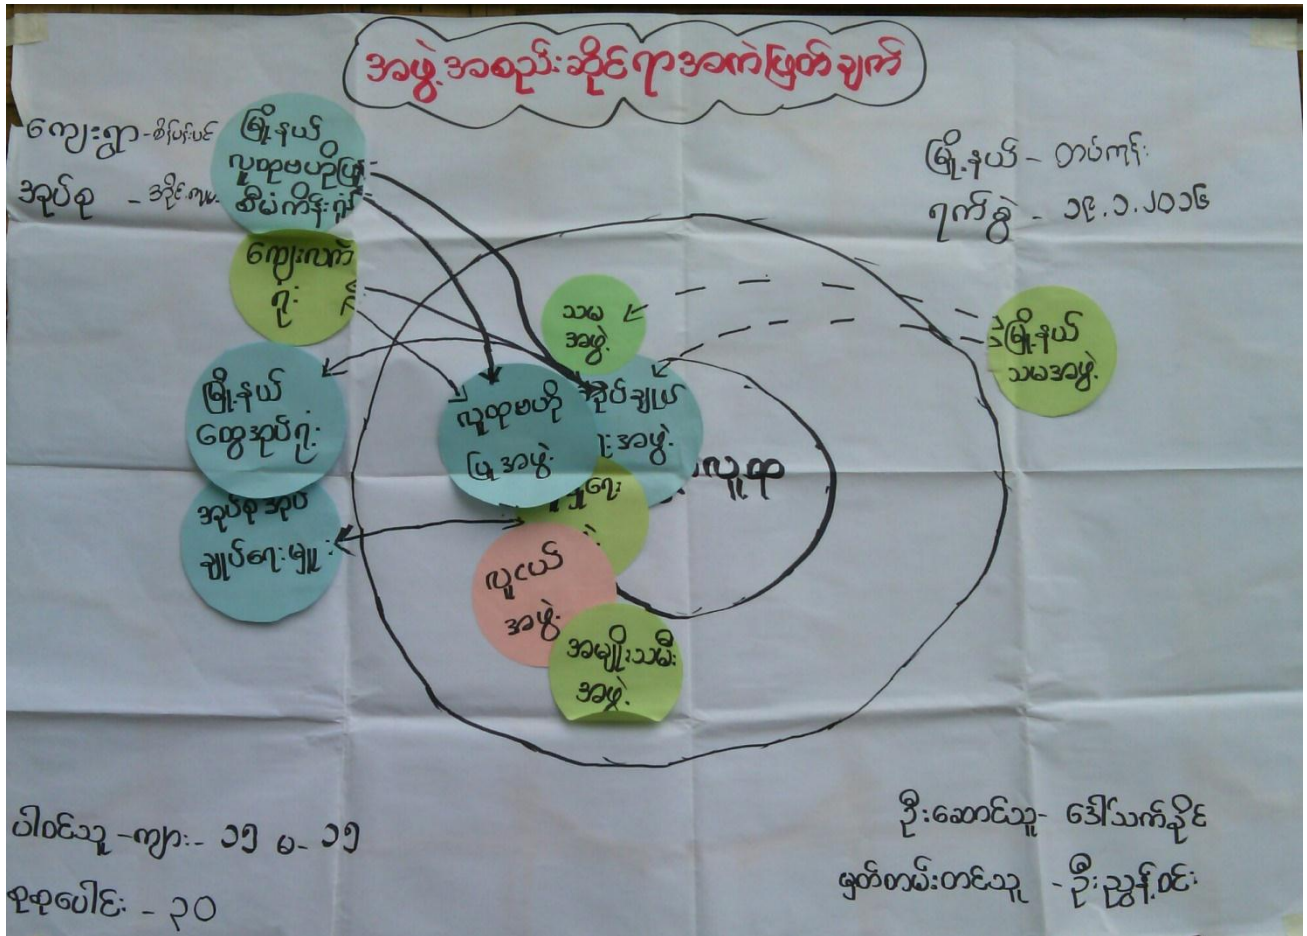 အဖွဲ့အစည်းဆိုင်ရာအကဲဖြတ်ချက်
ကျေးရွာ -
အုပ်စု -
မြို့နယ် - တပ်ကုန်း
ရက်စွဲ - ၁၉.၁.၂၀၁၆
မြို့နယ်
လူထုဗဟိုပြု
စီမံကိန်းရုံး
ကျေးလက်
ရုံး
သမ
အဖွဲ့
မြို့နယ်
သမအဖွဲ့
မြို့နယ်
ထွေအုပ်ရုံး
လူထုဗဟို
ပြုအဖွဲ့
အုပ်ချုပ်
ရေးအဖွဲ့
လူထု
အုပ်စုအုပ်
ချုပ်ရေးမှူး
လူငယ်
အဖွဲ့
အမျိုးသမီး
အဖွဲ့
ပါဝင်သူ - ကျား - ၁၅ မ - ၁၅
စုစုပေါင်း - ၃၀
ဦးဆောင်သူ - ဒေါ်သက်နိုင်
မှတ်တမ်းတင်သူ - ဦးညွန့်ဝင်း